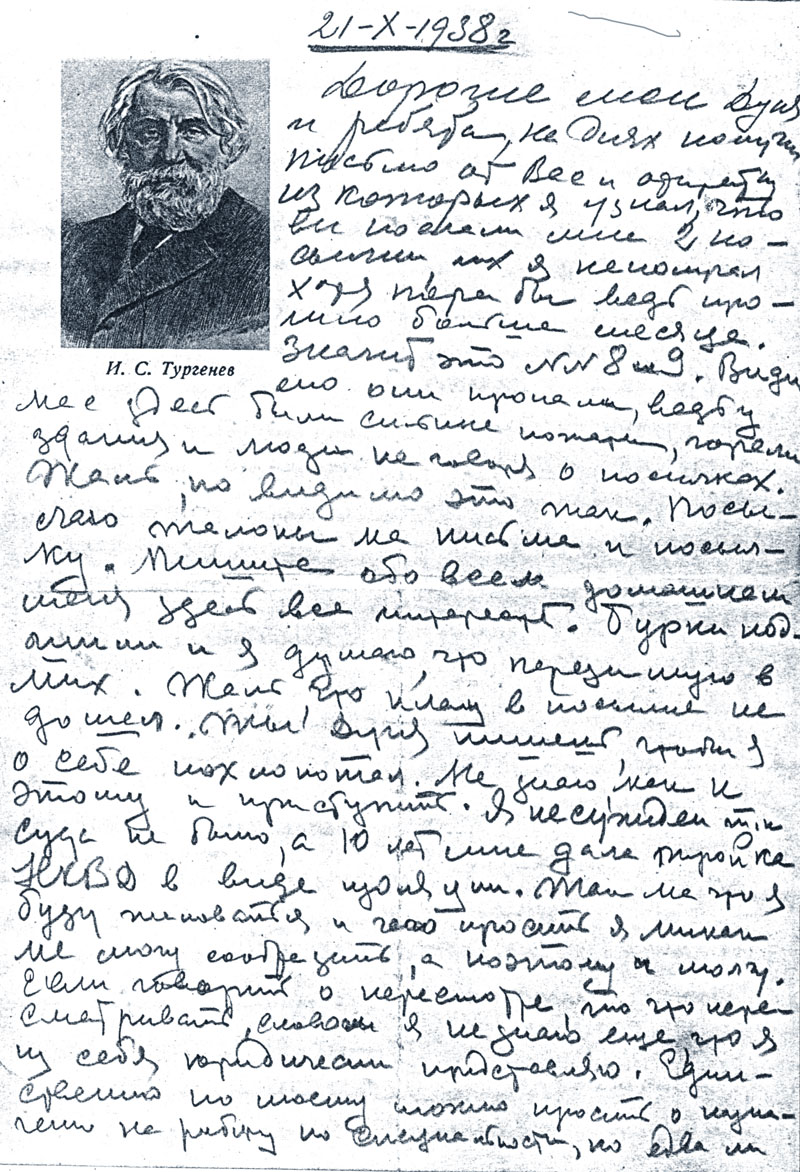 21-X-1938г
Дорогие мои Дуня
и ребята, на днях получил
письмо от Вас и открытку
из которых я узнал, что
вы послали мне 2 по-
сылки их я не получал
хотя пора бы ведь про-
шло больше месяца.
Значит это NN 8 и 9. Види
И. С. Тургенев
мо они пропали, ведь у
нас здесь были сильные пожары, горели
здания и люди не говоря о посылках.
Жаль, но видимо это так. Посы-
лаю талоны на письма и посыл-
ку. Пишите обо всем домашнем
меня здесь все интересует. Бурки под-
шили и я думаю, что перезимую в
них. Жаль что плащ в посылке не
дошел. Ты Дуня пишешь, чтобы я
о себе похлопотал. Не знаю как к
этому и приступить. Я не сужден т.к
суда не было, а 10 лет мне дала тройка
НКВД в виде изоляции. Так на что я
буду жаловаться и чего просить я никак
не могу сообразить, а поэтому и молчу.
Если говорить о пересмотре, то что пере-
сматривать, словом я не знаю еще что я
из себя юридически представляю. Един-
ственно по моему можно просить о назна-
чении на работу по специальности, но едва ли